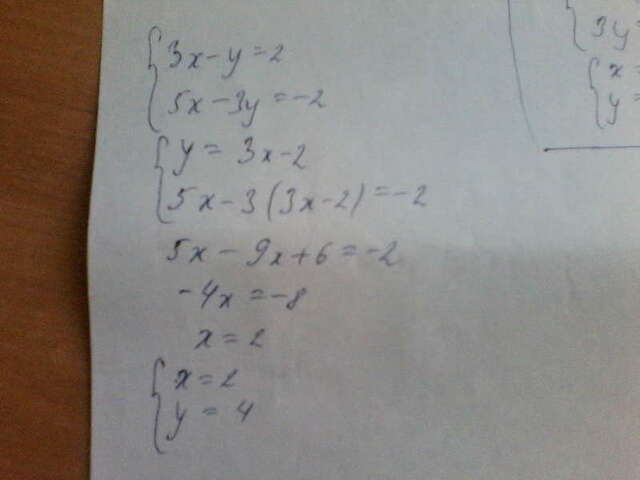 3x-y=2
5x-3y=-2
y=3x-2
5x-3(3x-2)=-2
5x-9x+6=-2
-4x=-8
x=2
x=2
y=4
3y=
x=
y=